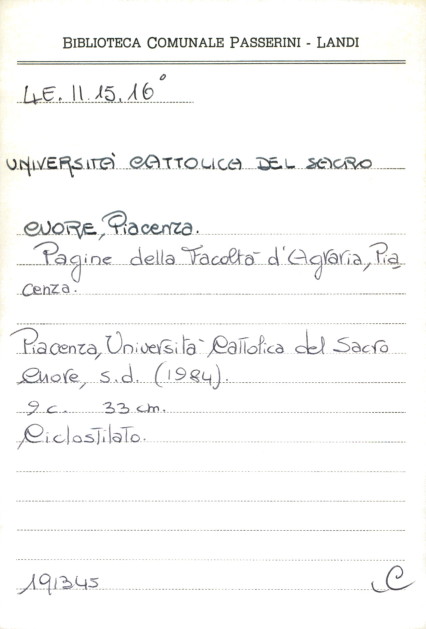 BIBLIOTECA COMUNALE PASSERINI - LANDI
4E. II. 15. 16°
UNIVERSITÀ CATTOLICA DEL SACRO
CUORE, Piacenza.
Pagine della Facoltà d'Agraria, Pia
cenza.
Piacenza, Università Cattolica del Sacro
Cuore, s.d. (1984).
9 c. 33 cm.
Ciclostilato.
191345 C